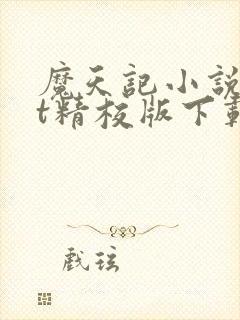 魔天記小說
t精校版下載
戲弦